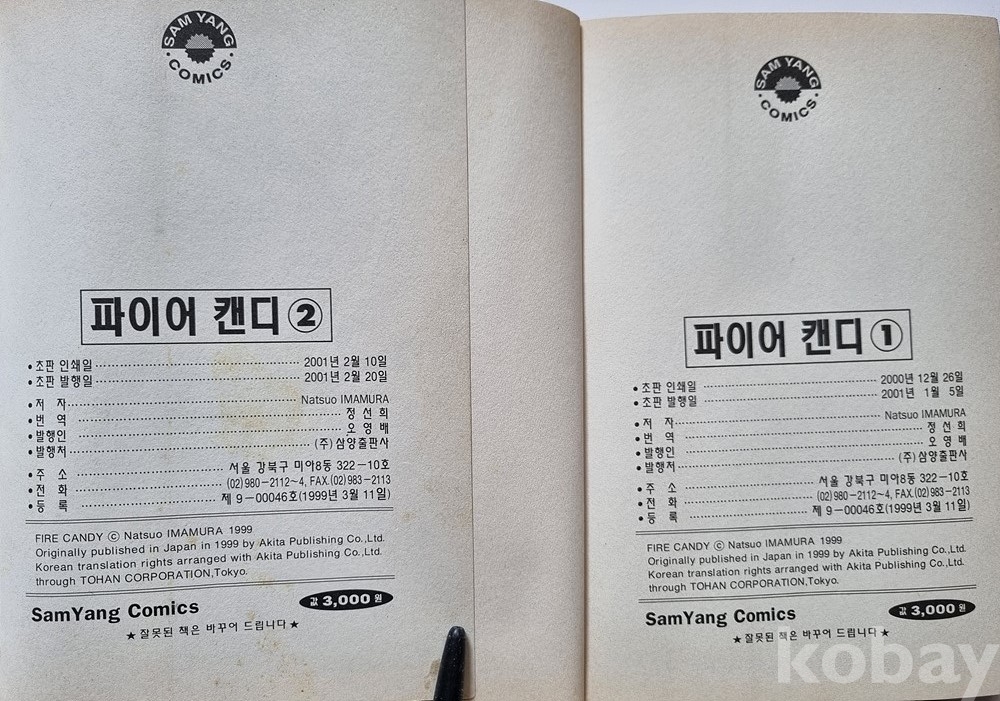 SAM YANG
COMICS
파이어 캔디 2
• 초판 인쇄일 2001년 2월 10일
• 초판 발행일 2001년 2월 20일
• 저 자 Natsuo IMAMURA
• 번 역 정 선 희
• 발행인 오 영 배
• 발행처 (주) 삼양출판사
• 주 소 서울 강북구 미아8동 322-10호
• 전 화 (02) 980-2112~4, FAX. (02) 983-2113
• 등 록 제 9-00046호(1999년 3월 11일)
FIRE CANDY ⓒ Natsuo IMAMURA 1999
Originally published in Japan in 1999 by Akita Publishing Co.,Ltd.
Korean translation rights arranged with Akita Publishing Co.,Ltd.
through TOHAN CORPORATION,Tokyo.
SamYang Comics 값 3,000 원
★ 잘못된 책은 바꾸어 드립니다 ★
SAM YANG
COMICS
파이어 캔디 1
• 초판 인쇄일 2000년 12월 26일
• 초판 발행일 2001년 1월 5일
• 저 자 Natsuo IMAMURA
• 번 역 정 선 희
• 발행인 오 영 배
• 발행처 (주) 삼양출판사
• 주 소 서울 강북구 미아8동 322-10호
• 전 화 (02) 980-2112~4, FAX. (02) 983-2113
• 등 록 제 9-00046호(1999년 3월 11일)
FIRE CANDY ⓒ Natsuo IMAMURA 1999
Originally published in Japan in 1999 by Akita Publishing Co.,Ltd.
Korean translation rights arranged with Akita Publishing Co.,Ltd.
through TOHAN CORPORATION,Tokyo.
SamYang Comics 값 3,000 원
★ 잘못된 책은 바꾸어 드립니다 ★
kobay